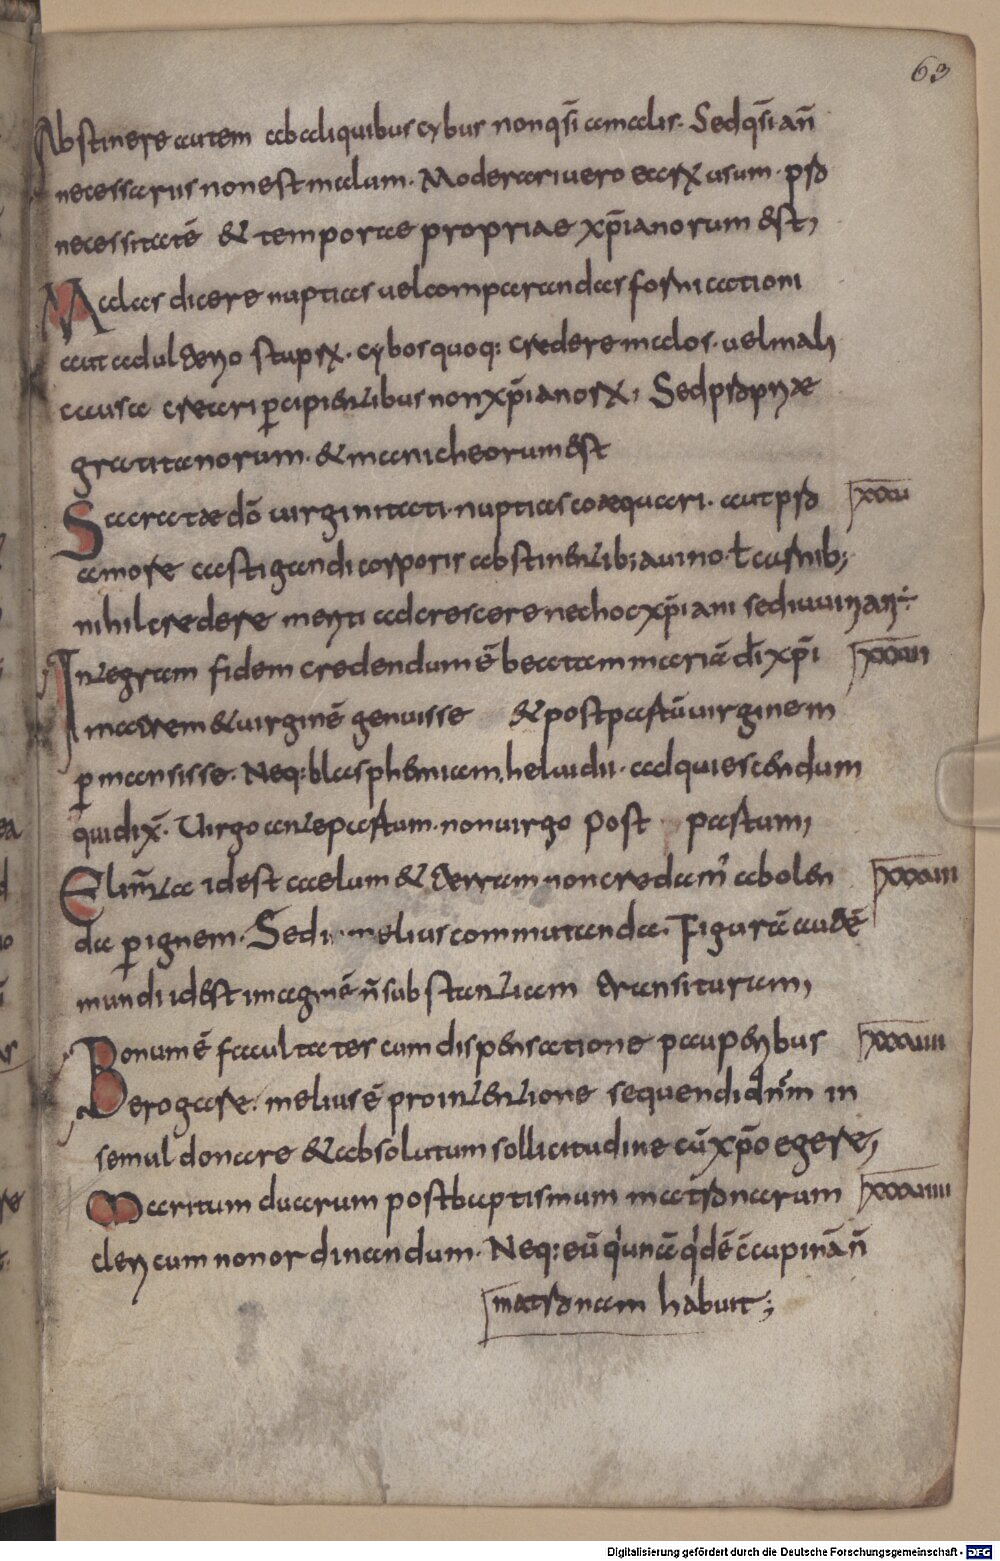 63
Abstinere autem ab aliquibus cybus non q̄si a malis. Sed q̄si añ
necessariis non est malum. Moderari vero earꝝ usum. pro
necessitatē & temporae propriae xp̄ianorum est;
Malas dicere nuptias vel comparandas fornicationi
aut adulterio stuprꝝ. cybos quoq: credere malos. vel mali
causa creari ꝑcipientibus non xp̄ianorꝝ; Sed proprie
gratianorum. & manicheorum est
Sacratae dō virginitati nuptias coaequari. aut pro xxxv
amore castigandi corporis abstinentib; a vino. ł carnib;
nihil credere meriti adcrescere nec hoc xp̄iani sed iuuiniani÷
Integram fidem credendum ē beatam mariā dī xp̄i xxxvi
matrem & virginē genuisse & post partū virginem
ꝑmansisse. Neq: blasphemiam helvidii. adquiescendum
qui dix̄. Virgo ante partum. non virgo post partum;
Elim̄ta id est caelum & terram non credam' abolen xxxvii
da ꝑ ignem. Sed in melius commutanda. Figurā autē
mundi id est imaginē ñ substantiam transituram;
Bonum ē facultates cum dispensatione pauperibus xxxviii
erogare. melius ē pro intentione sequendi dn̄m in
semul donare & absolutum sollicitudine cū xp̄o egere;
Maritum duarum post baptismum matronarum xxxviiii
clericum non ordinandum. Neq: eū qui unā qdē
matronam habuit;
Digitalisierung gefördert durch die Deutsche Forschungsgemeinschaft - DFG